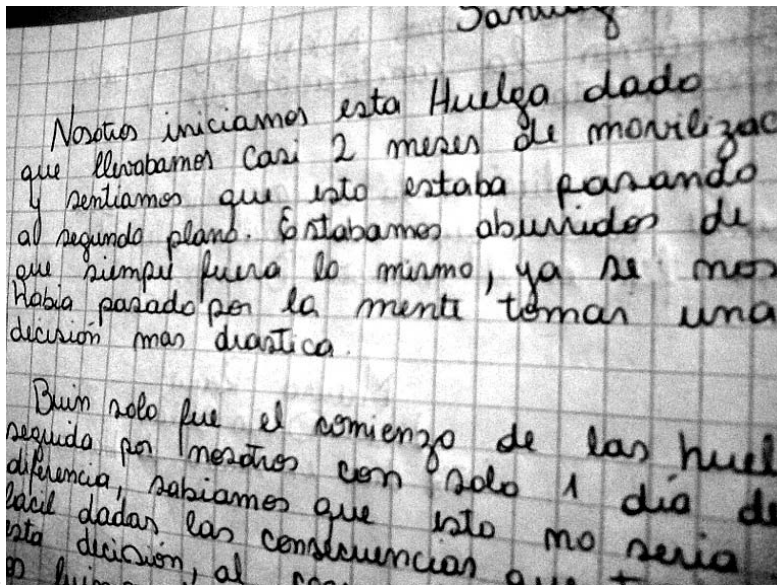 Santiag
Nosotros iniciamos esta Huelga dado
que llevabamos casi 2 meses de movilizac
y sentiamos que esto estaba pasando
al segundo plano. Estabamos aburridos de
que siempre fuera lo mismo, ya se nos
Habia pasado por la mente tomar una
decisión mas drastica.
Buin solo fue el comienzo de las huel
seguida por nosotros con solo 1 dia de
diferencia, sabiamos que esto no seria
facil dadas las consecuencias que
esta decisión, al